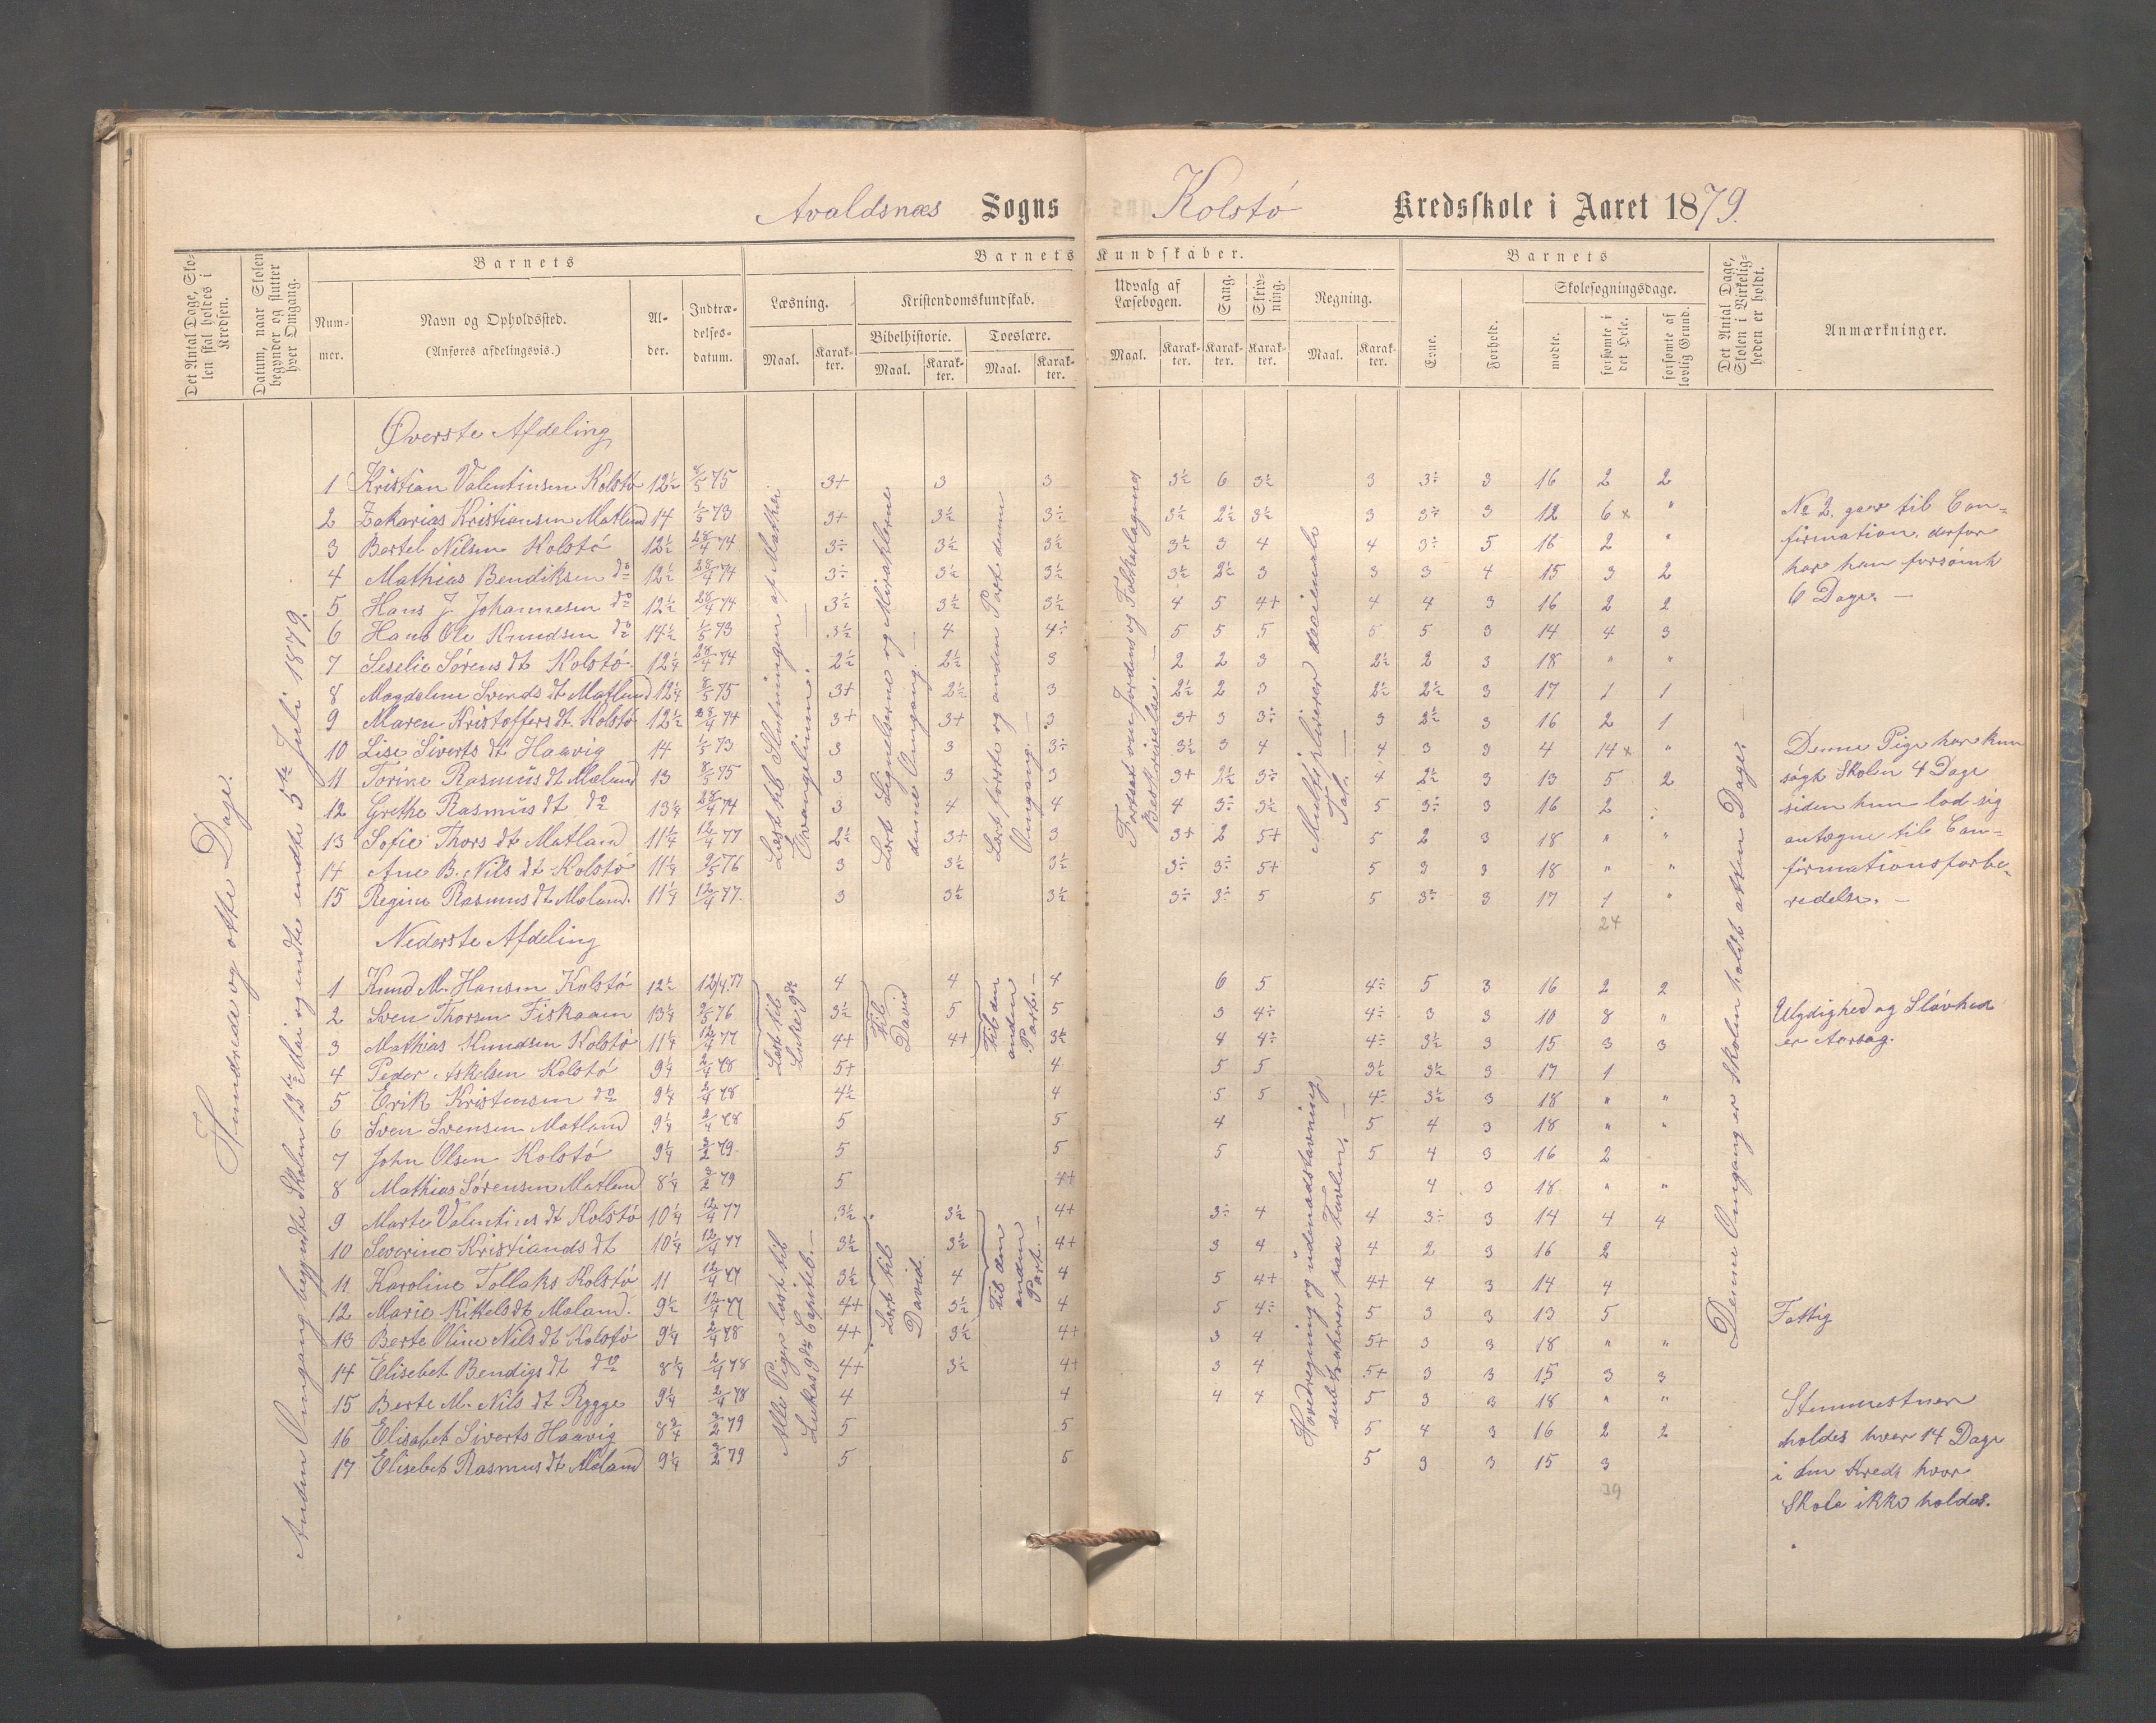 Avaldsnæs Sogns Kolstø Kredsskole i Aaret 1879.
Det Antal Dage, Skolen skal holdes i Kredsen.
Datum, naar Skolen begynder og slutter hver Omgang.
Barnets
Nummer.
Navn og Opholdssted.
(Anføres afdelingsvis.)
Alder.
Indtrædelsesdatum.
Barnets Kundskaber.
Læsning.
Maal. Karakter.
Kristendomskundskab.
Bibelhistorie. Troeslære.
Maal. Karakter. Maal. Karakter.
Udvalg af Læsebogen.
Maal. Karakter.
Sang. Karakter.
Skrivning. Karakter.
Regning.
Maal. Karakter.
Barnets
Evne. Forhold.
Skolesøgningsdage.
mødte. forsømte i det Hele. forsømte af lovlig Grund.
Det Antal Dage, Skolen i Virkeligheden er holdt.
Anmærkninger.
Hundrede og otte Dage.
Anden Omgang begyndte Skolen 13de Mai og endte 5te Juli 1879.
Øverste Afdeling
1 Kristian Valentinsen Kolstø 12½ 8/5 75 3+ 3 3 3½ 6 3½ 3 3÷ 3 16 2 2
2 Zakarias Kristiansen Matland 14 1/5 73 3+ 3½ 3÷ 3½ 2½ 3½ 3 3÷ 3 12 6 x "
3 Bertel Nilsen Kolstø 12½ 28/4 74 3÷ 3½ 3½ 3½ 3 4 4 3÷ 5 16 2 "
4 Mathias Bendiksen do 12½ 28/4 74 3÷ 3½ 3½ 3½ 2½ 3 3 3 4 15 3 2
5 Hans J. Johannesen do 12½ 28/4 74 3½ 3½ 3½ 4 5 4+ 4 4 3 16 2 2
6 Hans Ole Knudsen do 14½ 1/5 73 3½ 4 4÷ 5 5 5 5 5 3 14 4 3
7 Seselie Sørens dt Kolstø 12¼ 28/4 74 2½ 2½ 3 2 2 3 2½ 2 3 18 " "
8 Magdalene Svends dt Matland 12¼ 8/5 75 3+ 2½ 3 2½ 2 3 2½ 2½ 3 17 1 1
9 Maren Kristoffers dt Kolstø 12½ 28/4 74 3+ 3+ 3 3+ 3 3÷ 3 2½ 3 16 2 1
10 Lise Siverts dt Haavig 14 1/5 73 3 3 3÷ 3½ 3 4 4 3 3 4 14 x "
11 Torine Rasmus dt Mæland 13 8/5 75 3 3 3 3+ 2½ 3÷ 4 2½ 3 13 5 2
12 Grethe Rasmus dt do 13¼ 28/4 74 3 4 4 4 3÷ 3½ 5 3÷ 3 16 2
13 Sofie Thors dt Matland 11¼ 12/4 77 2½ 3+ 3 3+ 2 5+ 5 2 3 18 " "
14 Ane B. Nils dt Kolstø 11¼ 9/5 76 3 3½ 3½ 3÷ 3÷ 5+ 5 3 3 18 " "
15 Regine Rasmus dt Mæland. 11¼ 12/4 77. 3 3½ 3½ 3÷ 3÷ 5 5 3÷ 3 17 1 "
24
Læst til Slutningen af Mathæi Evangelium.
Lært Lignelserne og Miraklerne denne Omgang.
Lært første og anden Part denne Omgang.
Fortsat om Jorden og Folkeslagenes Beskrivelse.
Multipliserer decimale Tal.
Nederste Afdeling
1 Knud M. Hansen Kolstø 12½ 12/4 77 4 4 4 6 5 4÷ 5 3 16 2 2
2 Sven Thorsen Fiskaaen 13¼ 9/5 76 3½ 5 5 3 4÷ 4÷ 3 3 10 8 "
3 Mathias Knudsen Kolstø 11¼ 12/4 77 4+ 4+ 3½ 4 4÷ 4÷ 3½ 3 15 3 3
4 Peder Askelsen Kolstø 9¼ 2/4 78 5+ 4 5 5 3½ 3½ 3 17 1
5 Erik Kristensen do 9¼ 2/4 78 4½ 4 5 5 4÷ 3½ 3 18 " "
6 Sven Svensen Matland 9¼ 2/4 78 5 5 4 5 4 3 18 " "
7 John Olsen Kolstø 9¼ 3/2 79. 5 5 5 5 4 3 16 2
8 Mathias Sørensen Matland 8¼ 3/2 79 5 4+ 4 3 18 " "
9 Marte Valentins dt Kolstø 10¼ 12/4 77 3½ 3½ 4+ 3÷ 4 4 3÷ 3 14 4 4
10 Severine Kristiands dt 10¼ 12/4 77 3½ 3½ 4+ 3 4 4 2 3 16 2
11 Karoline Tollaks Kolstø 11 12/4 77 3½ 4 4 5 4+ 4+ 4 3 14 4
12 Marie Kittels dt Mæland. 9½ 12/4 77 4+ 3½ 4 5 4÷ 5 3 3 13 5
13 Berte Oline Nils dt Kolstø 9¼ 2/4 78 4+ 3½ 4+ 3 4 5+ 3 3 18 " "
14 Elisebet Bendigs dt do 8¼ 2/4 78 4+ 3½ 4+ 3 4 5+ 3 3 15 3 3
15 Berte M. Nils dt Rygge 9¼ 2/4 78 4 4 4 4 5 3 3 18 " "
16 Elisabet Siverts Haavig 8¾ 3/2 79 5 5 5 4 3 16 2 2
17 Elisebet Rasmus dt Mæland 9¼ 3/2 79 5 5 5 3 3 15 3
39
Læst til Luke 9de
Til David
Til den anden Part.
Alle Piger læst til Lukas 9de Capitel.
Lært til David.
Til den anden Part.
Hovedregning og udenadstavning, subtraherer paa Tavlen.
Denne Omgang er Skolen holdt atten Dage.
No 2. gaar til Con=
firmation, derfor
har han forsømt
6 Dage. —
Denne Pige har kun
søgt Skolen 4 Dage
siden hun lod sig
antegne til Con=
firmationsforbe=
redelse. —
Ulydighed og Sløvhed
er Aarsag.
Fattig
holdes hver 14 Dage
i den Kreds hvor
Skole ikke holdes.